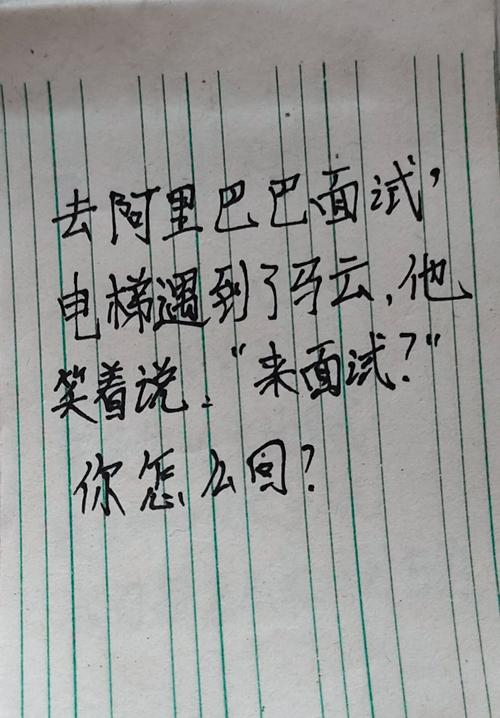 去阿里巴巴面试,
电梯遇到了马云,他
笑着说:“来面试?”
你怎么回?